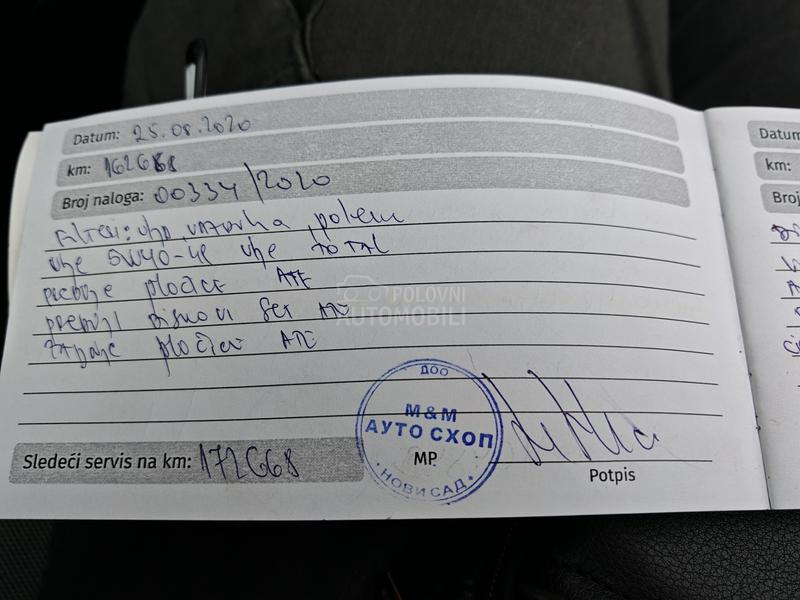 Datum: 25.08.2020
km: 162668
Broj naloga: 00334/2020
Filteri: ulja, vazduha, polena
ulje 5W40-4l ulje TOTAL
prednje pločice ATE
prednji diskovi set ATE
zadnje pločice ATE
POLOVNI
AUTOMOBILI
Sledeći servis na km: 172668
ДОО
M&M
АУТО СХОП
MP.
НОВИ САД
Potpis
Datum
km:
Broj